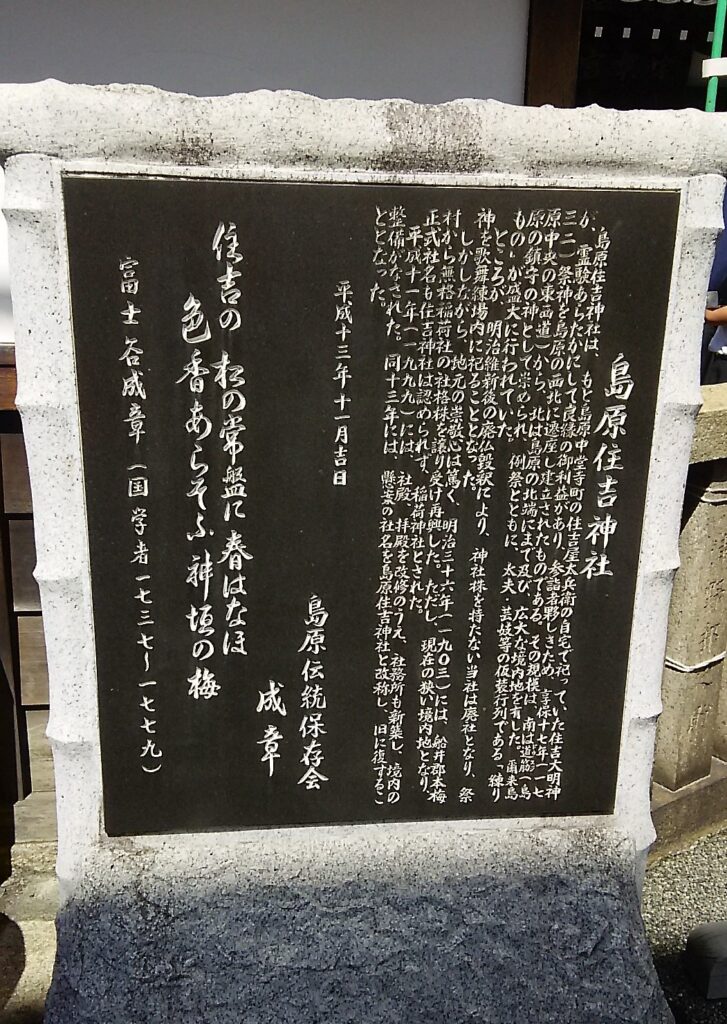 島原住吉神社
島原住吉神社は、もと島原中堂寺町の住吉屋太兵衛の自宅で祀っていた住吉大明神
が、霊験あらたかにして良縁の御利益があり、参詣者夥しきため、享保十七年(一七
三二)祭神を島原の西北に遷座し建立されたものである。その規模は、南は道筋(島
原中央の東西道)から、北は島原の北端にまで及び、広大な境内地を有した。爾来島
原の鎮守の神として崇められ、例祭とともに、太夫、芸妓等の仮装行列である「練り
もの」が盛大に行われていた。
ところが、明治維新後の廃仏毀釈により、神社株を持たない当社は廃社となり、祭
神を歌舞練場内に祀ることとなった。
しかしながら、地元の崇敬心は篤く、明治三十六年(一九〇三)には、船井郡本梅
村から無格稲荷社の社格株を譲り受け再興した。ただし、現在の狭い境内地となり、
正式社名も住吉神社は認められず、稲荷神社とされた。
平成十一年(一九九九)には、社殿、拝殿を改修のうえ、社務所も新築し、境内の
整備がなされた。同十三年には、懸案の社名を島原住吉神社と改称し、旧に復するこ
ととなった。
平成十三年十一月吉日
島原伝統保存会
成章
住吉の 松の常盤に 春はなほ
色香あらそふ 神垣の梅
富士谷成章(国学者一七三七〜一七七九)